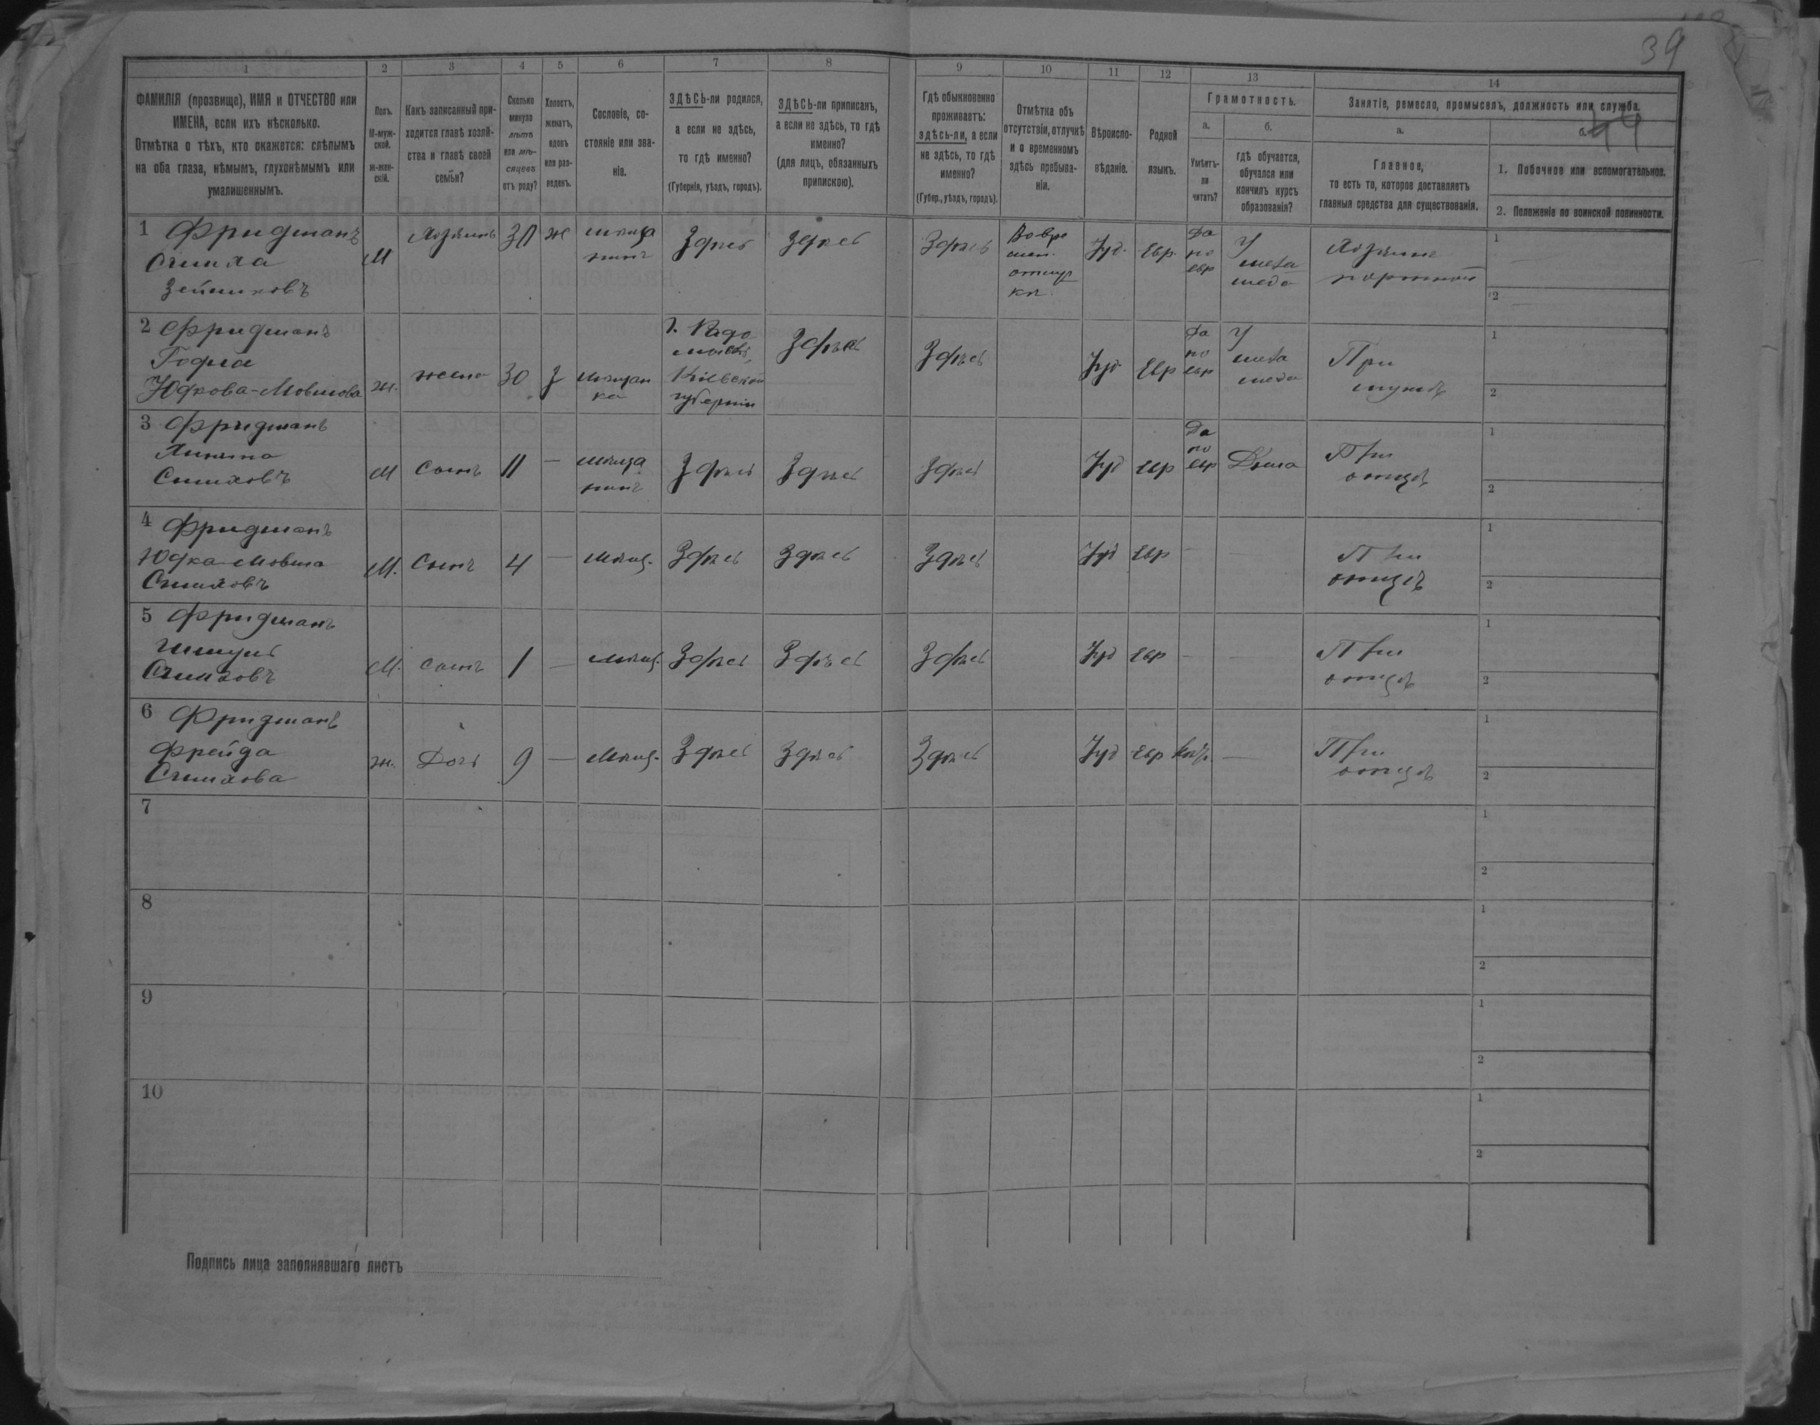 39
44
1
2
3
4
5
6
7
8
9
10
11
12
13
14
ФАМИЛІЯ (прозвище), ИМЯ и ОТЧЕСТВО или
ИМЕНА, если ихъ нѣсколько.
Отмѣтка о тѣхъ, кто окажется: слѣпымъ
на оба глаза, нѣмымъ, глухонѣмымъ или
умалишеннымъ.
Полъ.
М-муж-
ской.
ж-жен-
скій.
Какъ записанный при-
ходится главѣ хозяй-
ства и главѣ своей
семьи?
Сколько
минуло
лѣтъ
или мѣ-
сяцевъ
отъ роду?
Холостъ,
женатъ,
вдовъ
или раз-
веденъ.
Сословіе, со-
стояніе или зва-
ніе.
ЗДѢСЬ-ли родился,
а если не здѣсь,
то гдѣ именно?
(Губернія, уѣздъ, городъ).
ЗДѢСЬ-ли приписанъ,
а если не здѣсь, то гдѣ
именно?
(для лицъ, обязанныхъ
припискою).
Гдѣ обыкновенно
проживаетъ:
здѣсь-ли, а если
не здѣсь, то гдѣ
именно?
(Губер., уѣздъ, городъ).
Отмѣтка объ
отсутствіи, отлучкѣ
и о временномъ
здѣсь пребыва-
ніи.
Вѣроиспо-
вѣданіе.
Родной
языкъ.
Грамотность.
а.
Умѣетъ-
ли
читать?
б.
гдѣ обучается,
обучался или
кончилъ курсъ
образованія?
Занятіе, ремесло, промыселъ, должность или служба.
а.
Главное,
то есть то, которое доставляетъ
главныя средства для существованія.
1. Побочное или вспомогательное.
2. Положеніе по воинской повинности.
1 Фридманъ
Симха
М
Хозяинъ
30
же
мѣща
нинъ
Здѣсь
Здѣсь
Здѣсь
Вовре
мен.
отлуч
кѣ
Іуд.
евр.
Да
по
евр
У
мела
меда
Хозяинъ
портной
1
2
2 Фридманъ
Юдкова-Мовшова
ж.
жена
30
з
мѣщан
ка
г. Радо
мысль,
Кіевской
губерніи
Здѣсь
Здѣсь
Іуд
Евр
Да
по
евр
У
мела
меда
При
мужѣ
1
2
3 Фридманъ
Симховъ
М
Сынъ
11
—
мѣща
нинъ
Здѣсь
Здѣсь
Здѣсь
Іуд
евр
Да
по
евр
Дома
При
отцѣ
1
2
4 Фридманъ
Юдка-Мовша
Симховъ
М.
Сынъ
4
—
мѣщ.
Здѣсь
Здѣсь
Здѣсь
Іуд
евр
—
При
отцѣ
1
2
5 Фридманъ
Симховъ
М.
сынъ
1
—
мѣщ.
Здѣсь
Здѣсь
Здѣсь
Іуд
евр
—
—
При
отцѣ
1
2
6 Фридманъ
Фрейда
Симхова
ж.
Дочь
9
—
мѣщ.
Здѣсь
Здѣсь
Здѣсь
Іуд
евр
—
При
отцѣ
1
2
7
1
2
8
1
2
9
1
2
10
1
2
Подпись лица заполнявшаго листъ